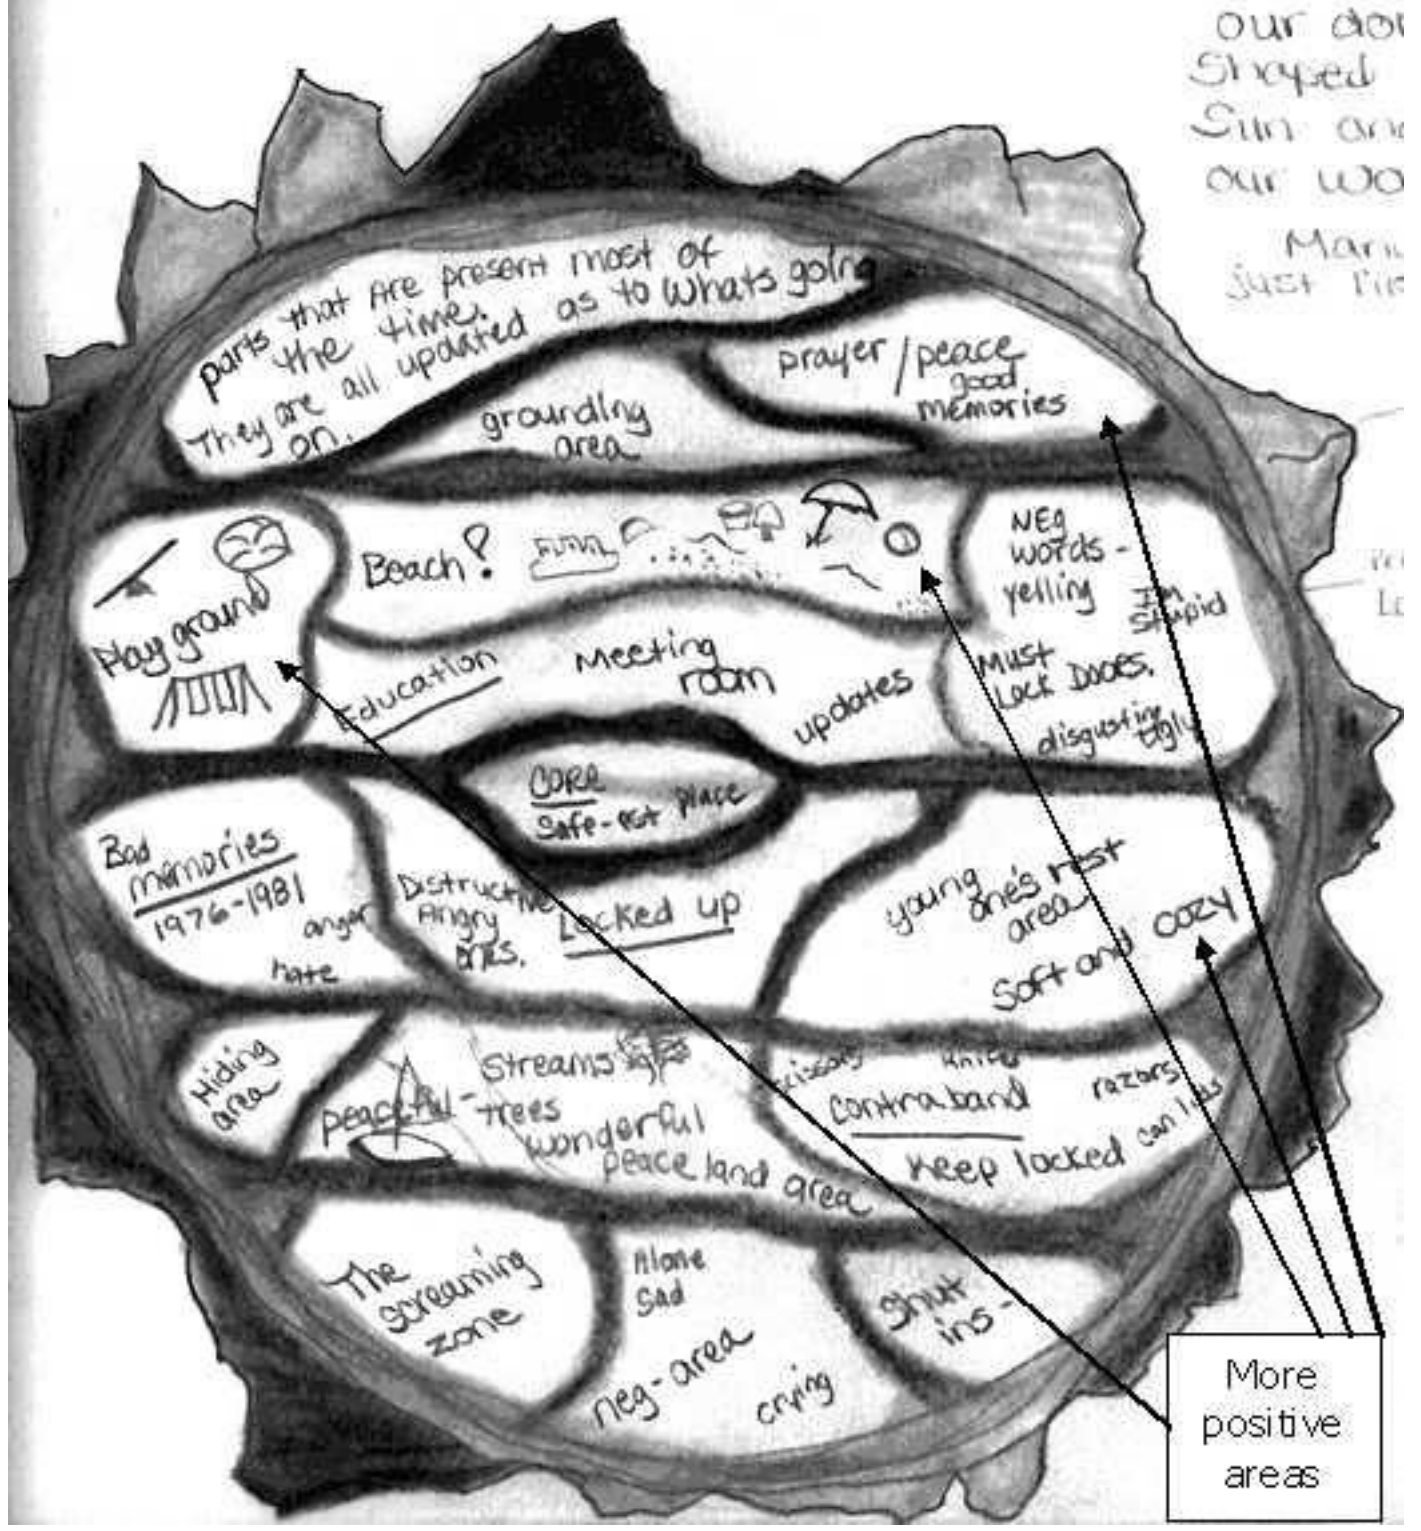 our
Shaped
Sun and
our
just
parts that are present most of
the time.
They are all updated as to whats going
on.
prayer / peace
good
memories
grounding
area
Playground
Beach!
NEg
words -
yelling
I'm
Stupid
Must
Lock Doors.
disgusting
Ugly
Education
Meeting
room
updates
CORE
Safe-est place
Bad
memories
1976-1981
anger
hate
Distructive
Angry
ones.
Locked up
young
one's rest
area
Soft and cozy
Hiding
area
peaceful-
Streams
trees
wonderful
peace land area
scissors
knifes
razors
contraband
can lids
Keep locked
The
screaming
zone
Alone
Sad
neg-area
crying
Shut
ins-
More
positive
areas